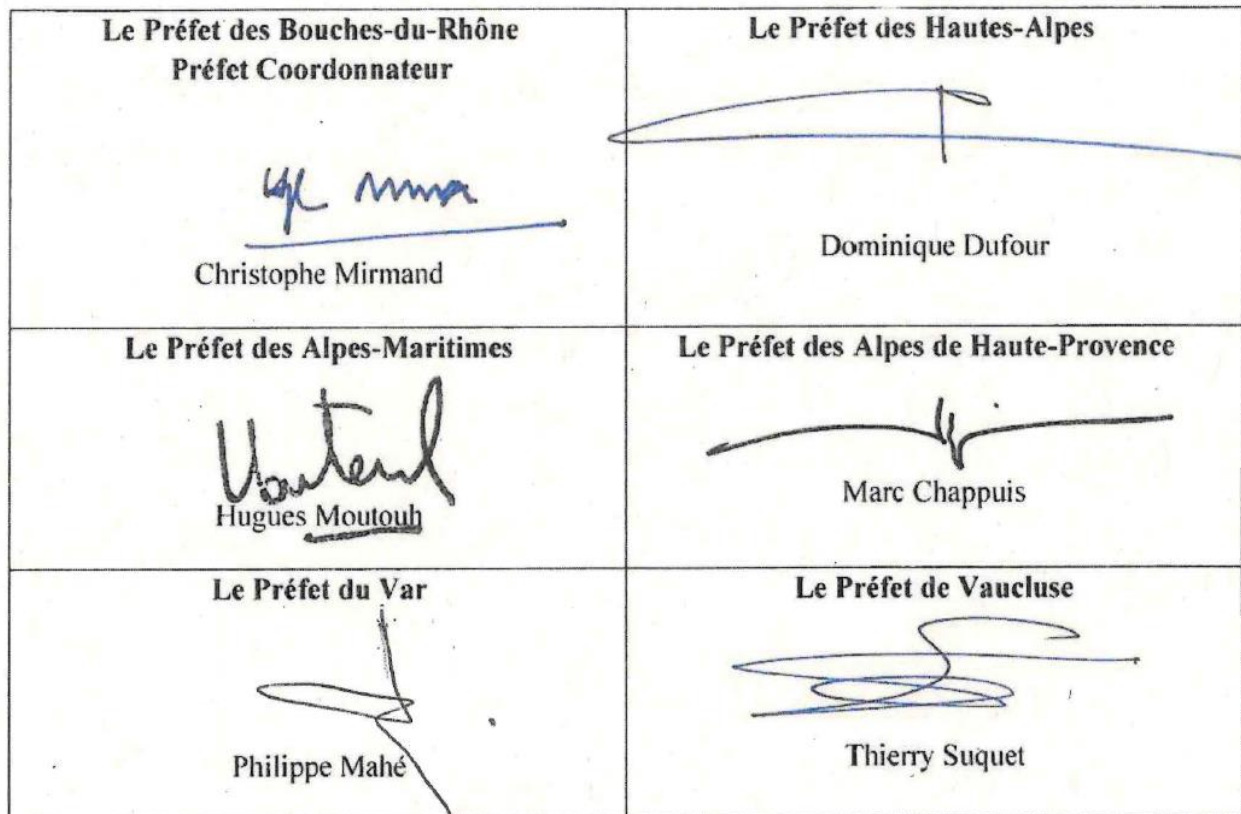 Le Préfet des Bouches-du-Rhône
Préfet Coordonnateur
Christophe Mirmand
Le Préfet des Hautes-Alpes
Dominique Dufour
Le Préfet des Alpes-Maritimes
Hugues Moutouh
Le Préfet des Alpes de Haute-Provence
Marc Chappuis
Le Préfet du Var
Philippe Mahé
Le Préfet de Vaucluse
Thierry Suquet